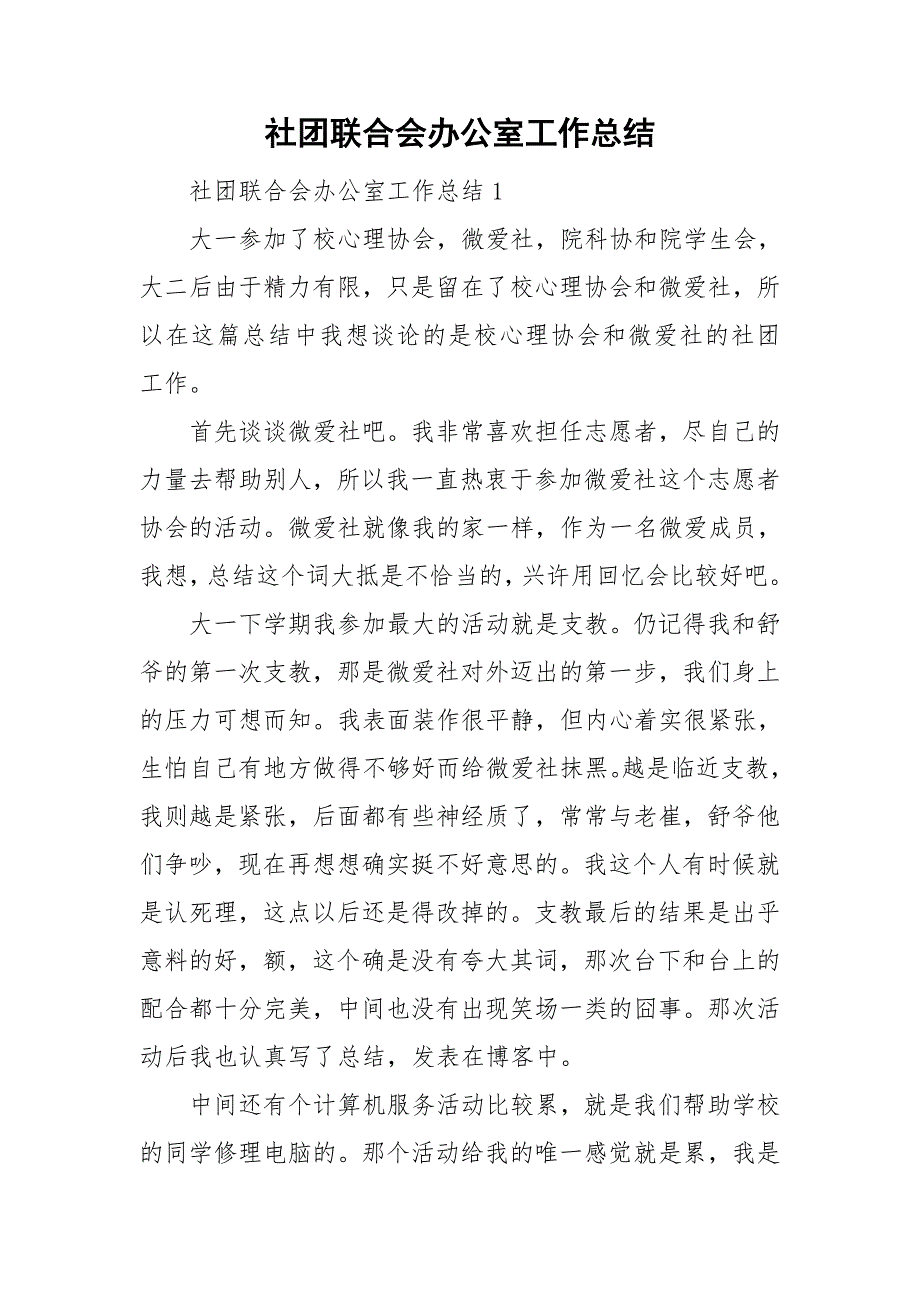 社团联合会办公室工作总结
社团联合会办公室工作总结 1
大一参加了校心理协会，微爱社，院科协和院学生会，
大二后由于精力有限，只是留在了校心理协会和微爱社，所
以在这篇总结中我想谈论的是校心理协会和微爱社的社团
工作。
首先谈谈微爱社吧。我非常喜欢担任志愿者，尽自己的
力量去帮助别人，所以我一直热衷于参加微爱社这个志愿者
协会的活动。微爱社就像我的家一样，作为一名微爱成员，
我想，总结这个词大抵是不恰当的，兴许用回忆会比较好吧。
大一下学期我参加最大的活动就是支教。仍记得我和舒
爷的第一次支教，那是微爱社对外迈出的第一步，我们身上
的压力可想而知。我表面装作很平静，但内心着实很紧张，
生怕自己有地方做得不够好而给微爱社抹黑。越是临近支教，
我则越是紧张，后面都有些神经质了，常常与老崔，舒爷他
们争吵，现在再想想确实挺不好意思的。我这个人有时候就
是认死理，这点以后还是得改掉的。支教最后的结果是出乎
意料的好，额，这个确是没有夸大其词，那次台下和台上的
配合都十分完美，中间也没有出现笑场一类的囧事。那次活
动后我也认真写了总结，发表在博客中。
中间还有个计算机服务活动比较累，就是我们帮助学校
的同学修理电脑的。那个活动给我的唯一感觉就是累，我是